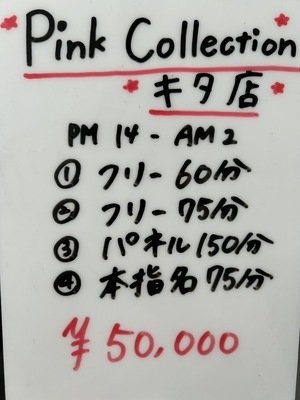 Pink Collection
キタ店
PM 14 - AM 2
① フリー 60分
② フリー 75分
③ パネル 150分
④ 本指名 75分
¥50,000